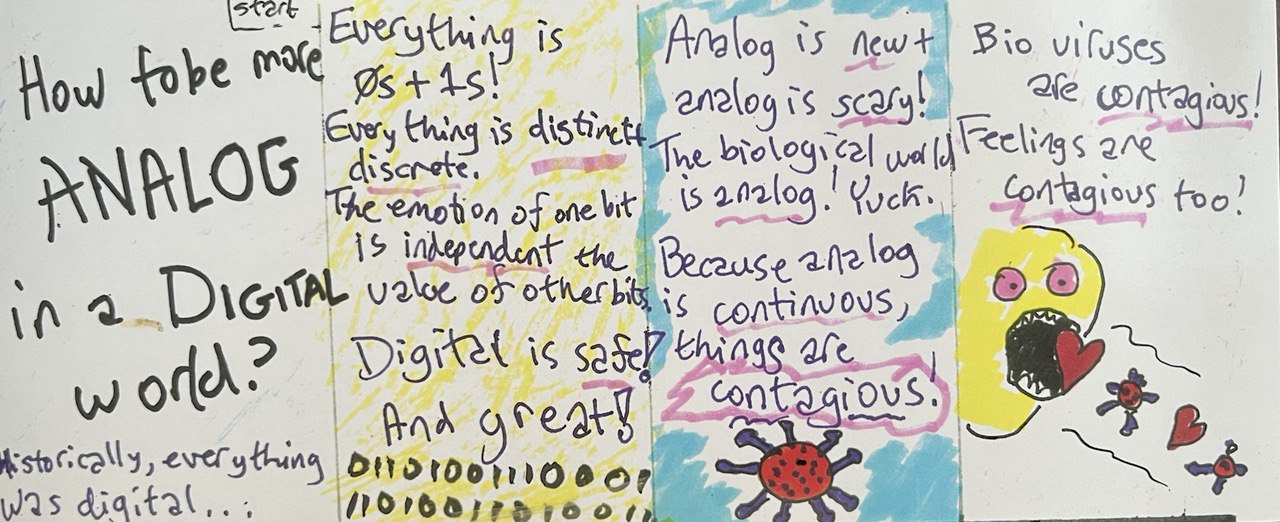 start
How to be more
ANALOG
in a DIGITAL
world?
Historically, everything
was digital...
Everything is
0s + 1s!
Everything is distinct +
discrete.
The emotion of one bit
is independent the
value of other bits.
Digital is safe!
And great!
0110100111000 1
1101001101001 1
Analog is new +
analog is scary!
The biological world
is analog! Yuck.
Because analog
is continuous,
things are
contagious!
Bio viruses
are contagious!
Feelings are
contagious too!